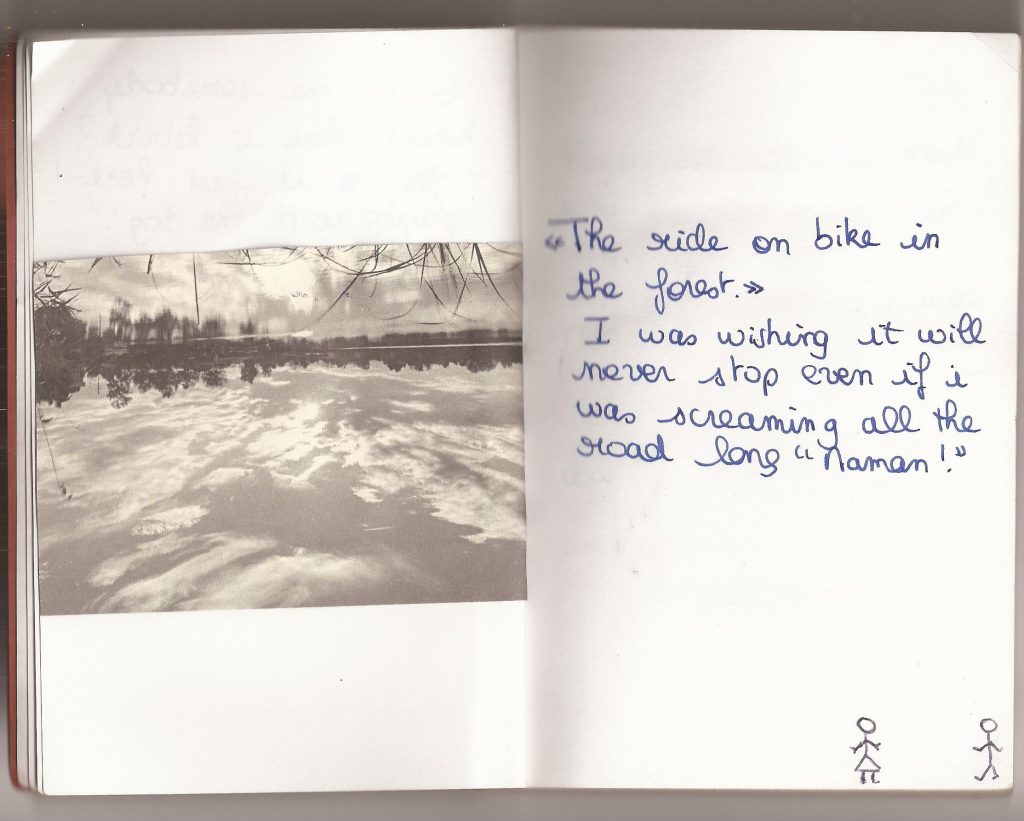 «The ride on bike in
the forest.»
I was wishing it will
never stop even if i
was screaming all the
road long “Naman!”